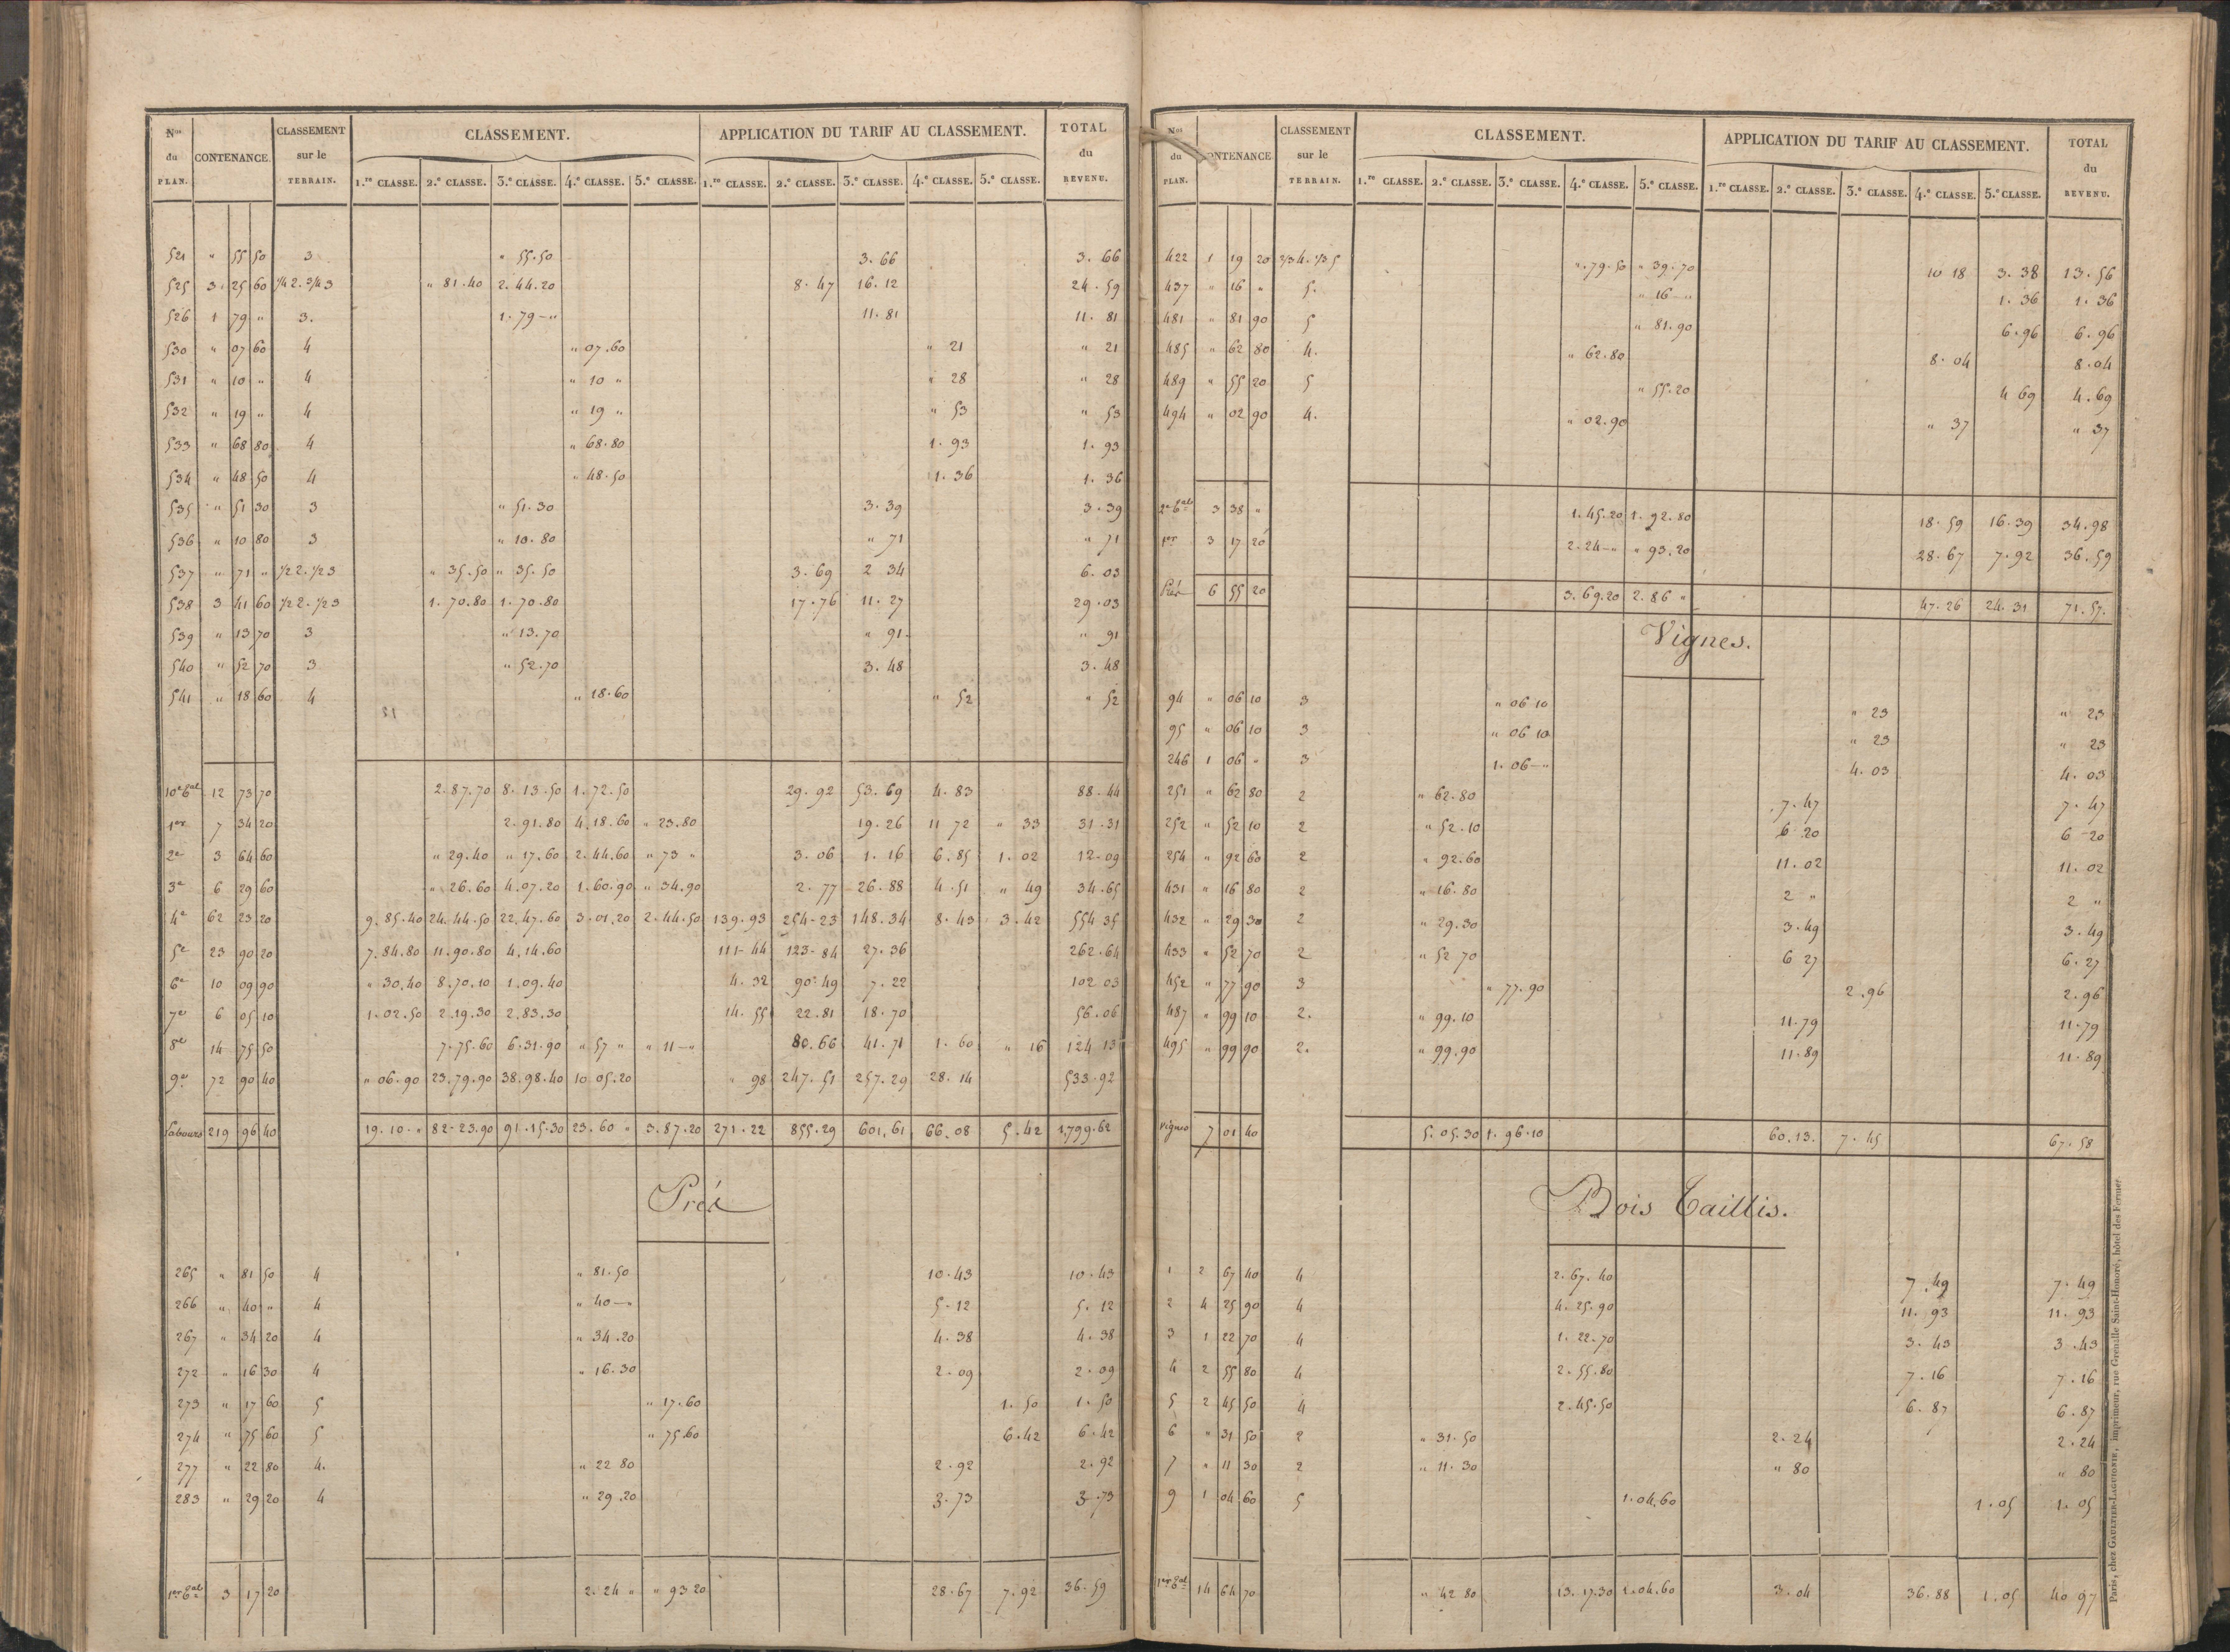 Nos du PLAN. CONTENANCE. CLASSEMENT sur le TERRAIN. CLASSEMENT. APPLICATION DU TARIF AU CLASSEMENT. TOTAL du REVENU.
1.re CLASSE. 2.e CLASSE. 3.e CLASSE. 4.e CLASSE. 5.e CLASSE. 1.re CLASSE. 2.e CLASSE. 3.e CLASSE. 4.e CLASSE. 5.e CLASSE.
521 " 55 50 3 " 55.50 3.66 3.66
525 3 25 60 1/4 2. 3/4 3 " 81.40 2.44.20 8.47 16.12 24.59
526 1 79 " 3. 1.79-" 11.81 11.81
530 " 07 60 4 " 07.60 " 21 " 21
531 " 10 " 4 " 10 " " 28 " 28
532 " 19 " 4 " 19 " " 53 " 53
533 " 68 80 4 " 68.80 1.93 1.93
534 " 48 50 4 " 48.50 1.36 1.36
535 " 51 30 3 " 51.30 3.39 3.39
536 " 10 80 3 " 10.80 " 71 " 71
537 " 71 " 1/2 2. 1/2 3 " 35.50 " 35.50 3.69 2 34 6.03
538 3 41 60 1/2 2. 1/2 3 1.70.80 1.70.80 17.76 11.27 29.03
539 " 13 70 3 " 13.70 " 91 " 91
540 " 52 70 3 " 52.70 3.48 3.48
541 " 18 60 4 " 18.60 " 52 " 52
10e 12 73 70 2.87.70 8.13.50 1.72.50 29.92 53.69 4.83 88.44
1er 7 34 20 2.91.80 4.18.60 " 23.80 19.26 11 72 " 33 31.31
2e 3 64 60 " 29.40 " 17.60 2.44.60 " 73 " 3.06 1.16 6.85 1.02 12.09
3e 6 29 60 " 26.60 4.07.20 1.60.90 " 34.90 2.77 26.88 4.51 " 49 34.65
4e 62 23 20 9.85.40 24.44.50 22.47.60 3.01.20 2.44.50 139.93 254-23 148.34 8.43 3.42 554 35
5e 23 90 20 7.84.80 11.90.80 4.14.60 111-44 123-84 27.36 262.64
6e 10 09 90 " 30.40 8.70.10 1.09.40 4.32 90.49 7.22 102 03
7e 6 05 10 1.02.50 2.19.30 2.83.30 14.55 22.81 18.70 56.06
8e 14 75 50 7.75.60 6.31.90 " 57 " " 11-" 80.66 41.71 1.60 " 16 124 13
9e 72 90 40 " 06.90 23.79.90 38.98.40 10 05.20 " 98 247.51 257.29 28.14 533.92
Labours 219 96 40 19.10." 82-23.90 91.15.30 23.60 " 3.87.20 271.22 855.29 601.61 66.08 5.42 1,799.62
Prés
265 " 81 50 4 " 81.50 10.43 10.43
266 " 40 " 4 " 40-" 5-12 5.12
267 " 34 20 4 " 34.20 4.38 4.38
272 " 16 30 4 " 16.30 2.09 2.09
273 " 17 60 5 " 17.60 1.50 1.50
274 " 75 60 5 " 75.60 6.42 6.42
277 " 22 80 4. " 22 80 2.92 2.92
283 " 29 20 4 " 29.20 3.73 3.73
1er 3 17 20 2.24 " " 93 20 28.67 7.92 36.59
Nos du PLAN. CONTENANCE CLASSEMENT sur le TERRAIN. CLASSEMENT. APPLICATION DU TARIF AU CLASSEMENT. TOTAL du REVENU.
1.re CLASSE. 2.e CLASSE. 3.e CLASSE. 4.e CLASSE. 5.e CLASSE. 1.re CLASSE. 2.e CLASSE. 3.e CLASSE. 4.e CLASSE. 5.e CLASSE.
422 1 19 20 2/3 4. 1/3 5 ".79.50 " 39.70 10 18 3.38 13.56
437 " 16 " 5. " 16-" 1.36 1.36
481 " 81 90 5 " 81.90 6.96 6.96
485 " 62 80 4. " 62.80 8.04 8.04
489 " 55 20 5 " 55.20 4 69 4.69
494 " 02 90 4. " 02.90 " 37 " 37
2e 3 38 " 1.45.20 1.92.80 18.59 16.39 34.98
1er 3 17 20 2.24-" " 93.20 28.67 7.92 36.59
Prés 6 55 20 3.69.20 2.86 " 47.26 24.31 71.57.
Vignes.
94 " 06 10 3 " 06 10 " 23 " 23
95 " 06 10 3 " 06 10 " 23 " 23
246 1 06 " 3 1.06-" 4.03 4.03
251 " 62 80 2 " 62.80 7.47 7.47
252 " 52 10 2 " 52.10 6 20 6-20
254 " 92 60 2 " 92.60 11.02 11.02
431 " 16 80 2 " 16.80 2 " 2 "
432 " 29 30 2 " 29.30 3.49 3.49
433 " 52 70 2 " 52 70 6 27 6.27
452 " 77 90 3 " 77.90 2.96 2.96
487 " 99 10 2. " 99.10 11.79 11.79
495 " 99 90 2. " 99.90 11.89 11.89
Vignes 7 01 40 5.05.30 1.96.10 60.13. 7.45 67.58
Bois Taillis.
1 2 67 40 4 2.67.40 7.49 7.49
2 4 25 90 4 4.25.90 11.93 11.93
3 1 22 70 4 1.22.70 3.43 3.43
4 2 55 80 4 2.55.80 7.16 7.16
5 2 45 50 4 2.45.50 6.87 6.87
6 " 31 50 2 " 31.50 2.24 2.24
7 " 11 30 2 " 11.30 " 80 " 80
9 1 04 60 5 1.04.60 1.05 1.05
1er 14 64 70 " 42 80 13.17.30 1.04.60 3.04 36.88 1.05 40 97
Paris, chez GAULTIER-LAGUIONIE, imprimeur, rue Grenelle Saint-Honoré, hôtel des Fermes.